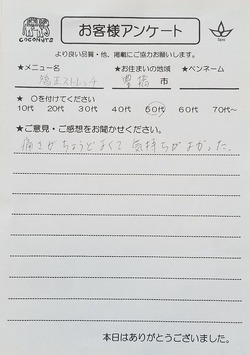 COCONUTS
お客様アンケート
より良い品質・他、掲載にご協力お願いします。
★メニュー名 ★お住まいの地域 ★ペンネーム
矯正ストレッチ 豊橋 市
★ 〇を付けてください
10代 20代 30代 40代 50代 60代 70代〜
★ご意見・ご感想をお聞かせください。
痛さがちょうどよくて 気持ちがよかった。
本日はありがとうございました。